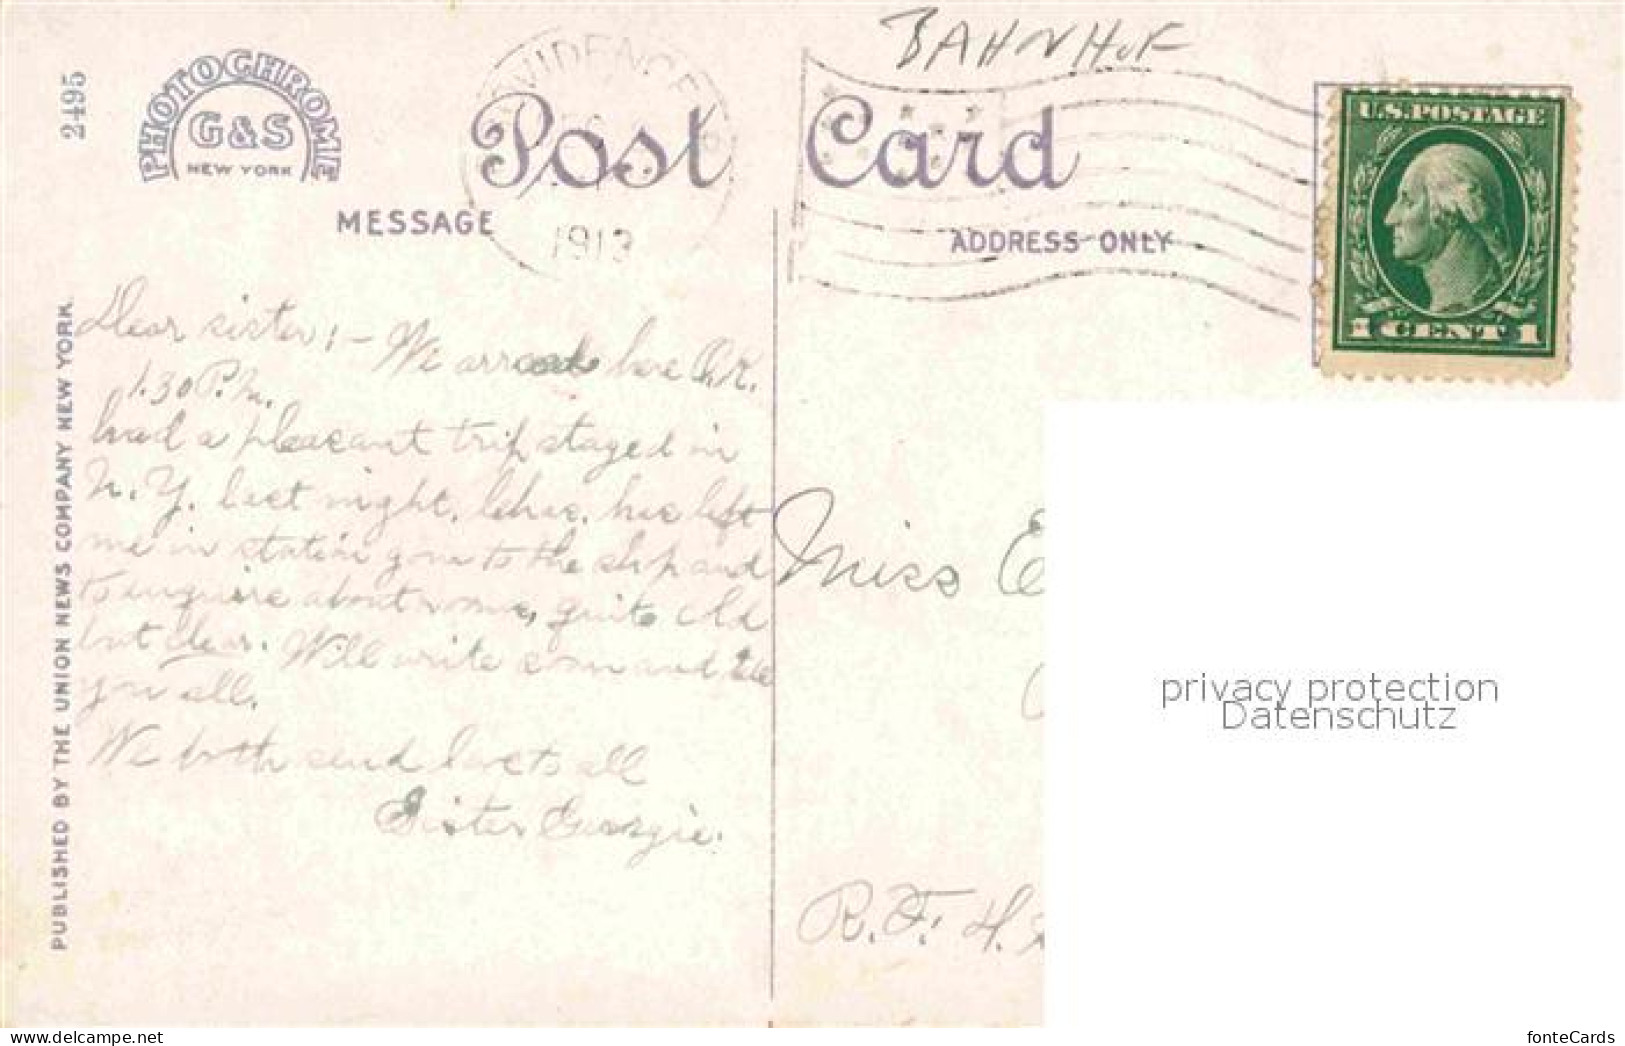 BAHNHOF
2495
PHOTOCHROME
G&S
NEW YORK
PROVIDENCE
1913
Post Card
U.S. POSTAGE
1 CENT 1
MESSAGE
ADDRESS ONLY
PUBLISHED BY THE UNION NEWS COMPANY NEW YORK
Dear sister:- We arrived here O.K.
1.30 P.M.
had a pleasant trip stayed in
N.Y. last night. Chas. has left
me in station gone to the shop and
to enquire about rooms, quite cold
but clear. Will write soon and tell
you all.
We both send love to all
Sister Georgie.
Miss E
R. F. H.
privacy protection
Datenschutz
fonteCards
https://www.ansichtskarten-center.de/